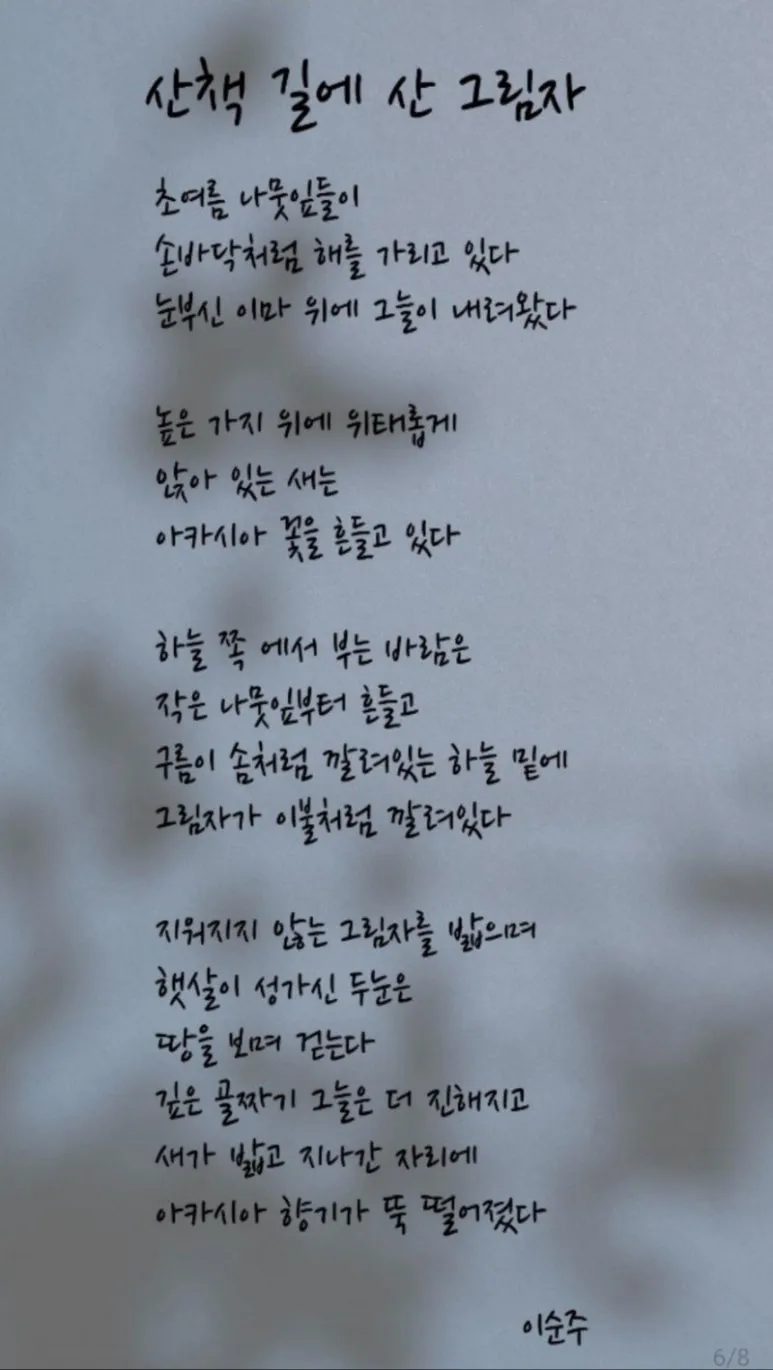 산책 길에 산 그림자
초여름 나뭇잎들이
손바닥처럼 해를 가리고 있다
눈부신 이마 위에 그늘이 내려왔다
높은 가지 위에 위태롭게
앉아 있는 새는
아카시아 꽃을 흔들고 있다
하늘 쪽 에서 부는 바람은
작은 나뭇잎부터 흔들고
구름이 솜처럼 깔려있는 하늘 밑에
그림자가 이불처럼 깔려있다
지워지지 않는 그림자를 밟으며
햇살이 성가신 두눈은
땅을 보며 걷는다
깊은 골짜기 그늘은 더 진해지고
새가 밟고 지나간 자리에
아카시아 향기가 뚝 떨어졌다
이순주
6/8